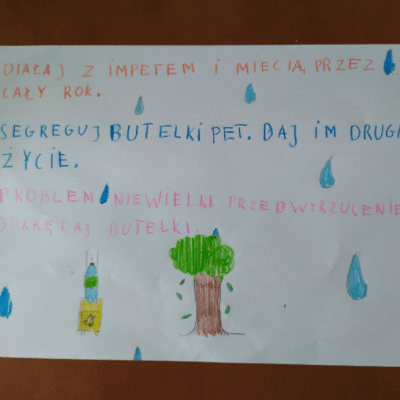 DIAŁAJ Z IMPETEM I MIECIA, PRZEZ
CAŁY ROK.
SEGREGUJ BUTELKI PET. DAJ IM DRUGI
ŻYCIE.
PROBLEM NIEWIELKI PRZED WYRZUCENIE
DOKRĘCAJ BUTELKI.